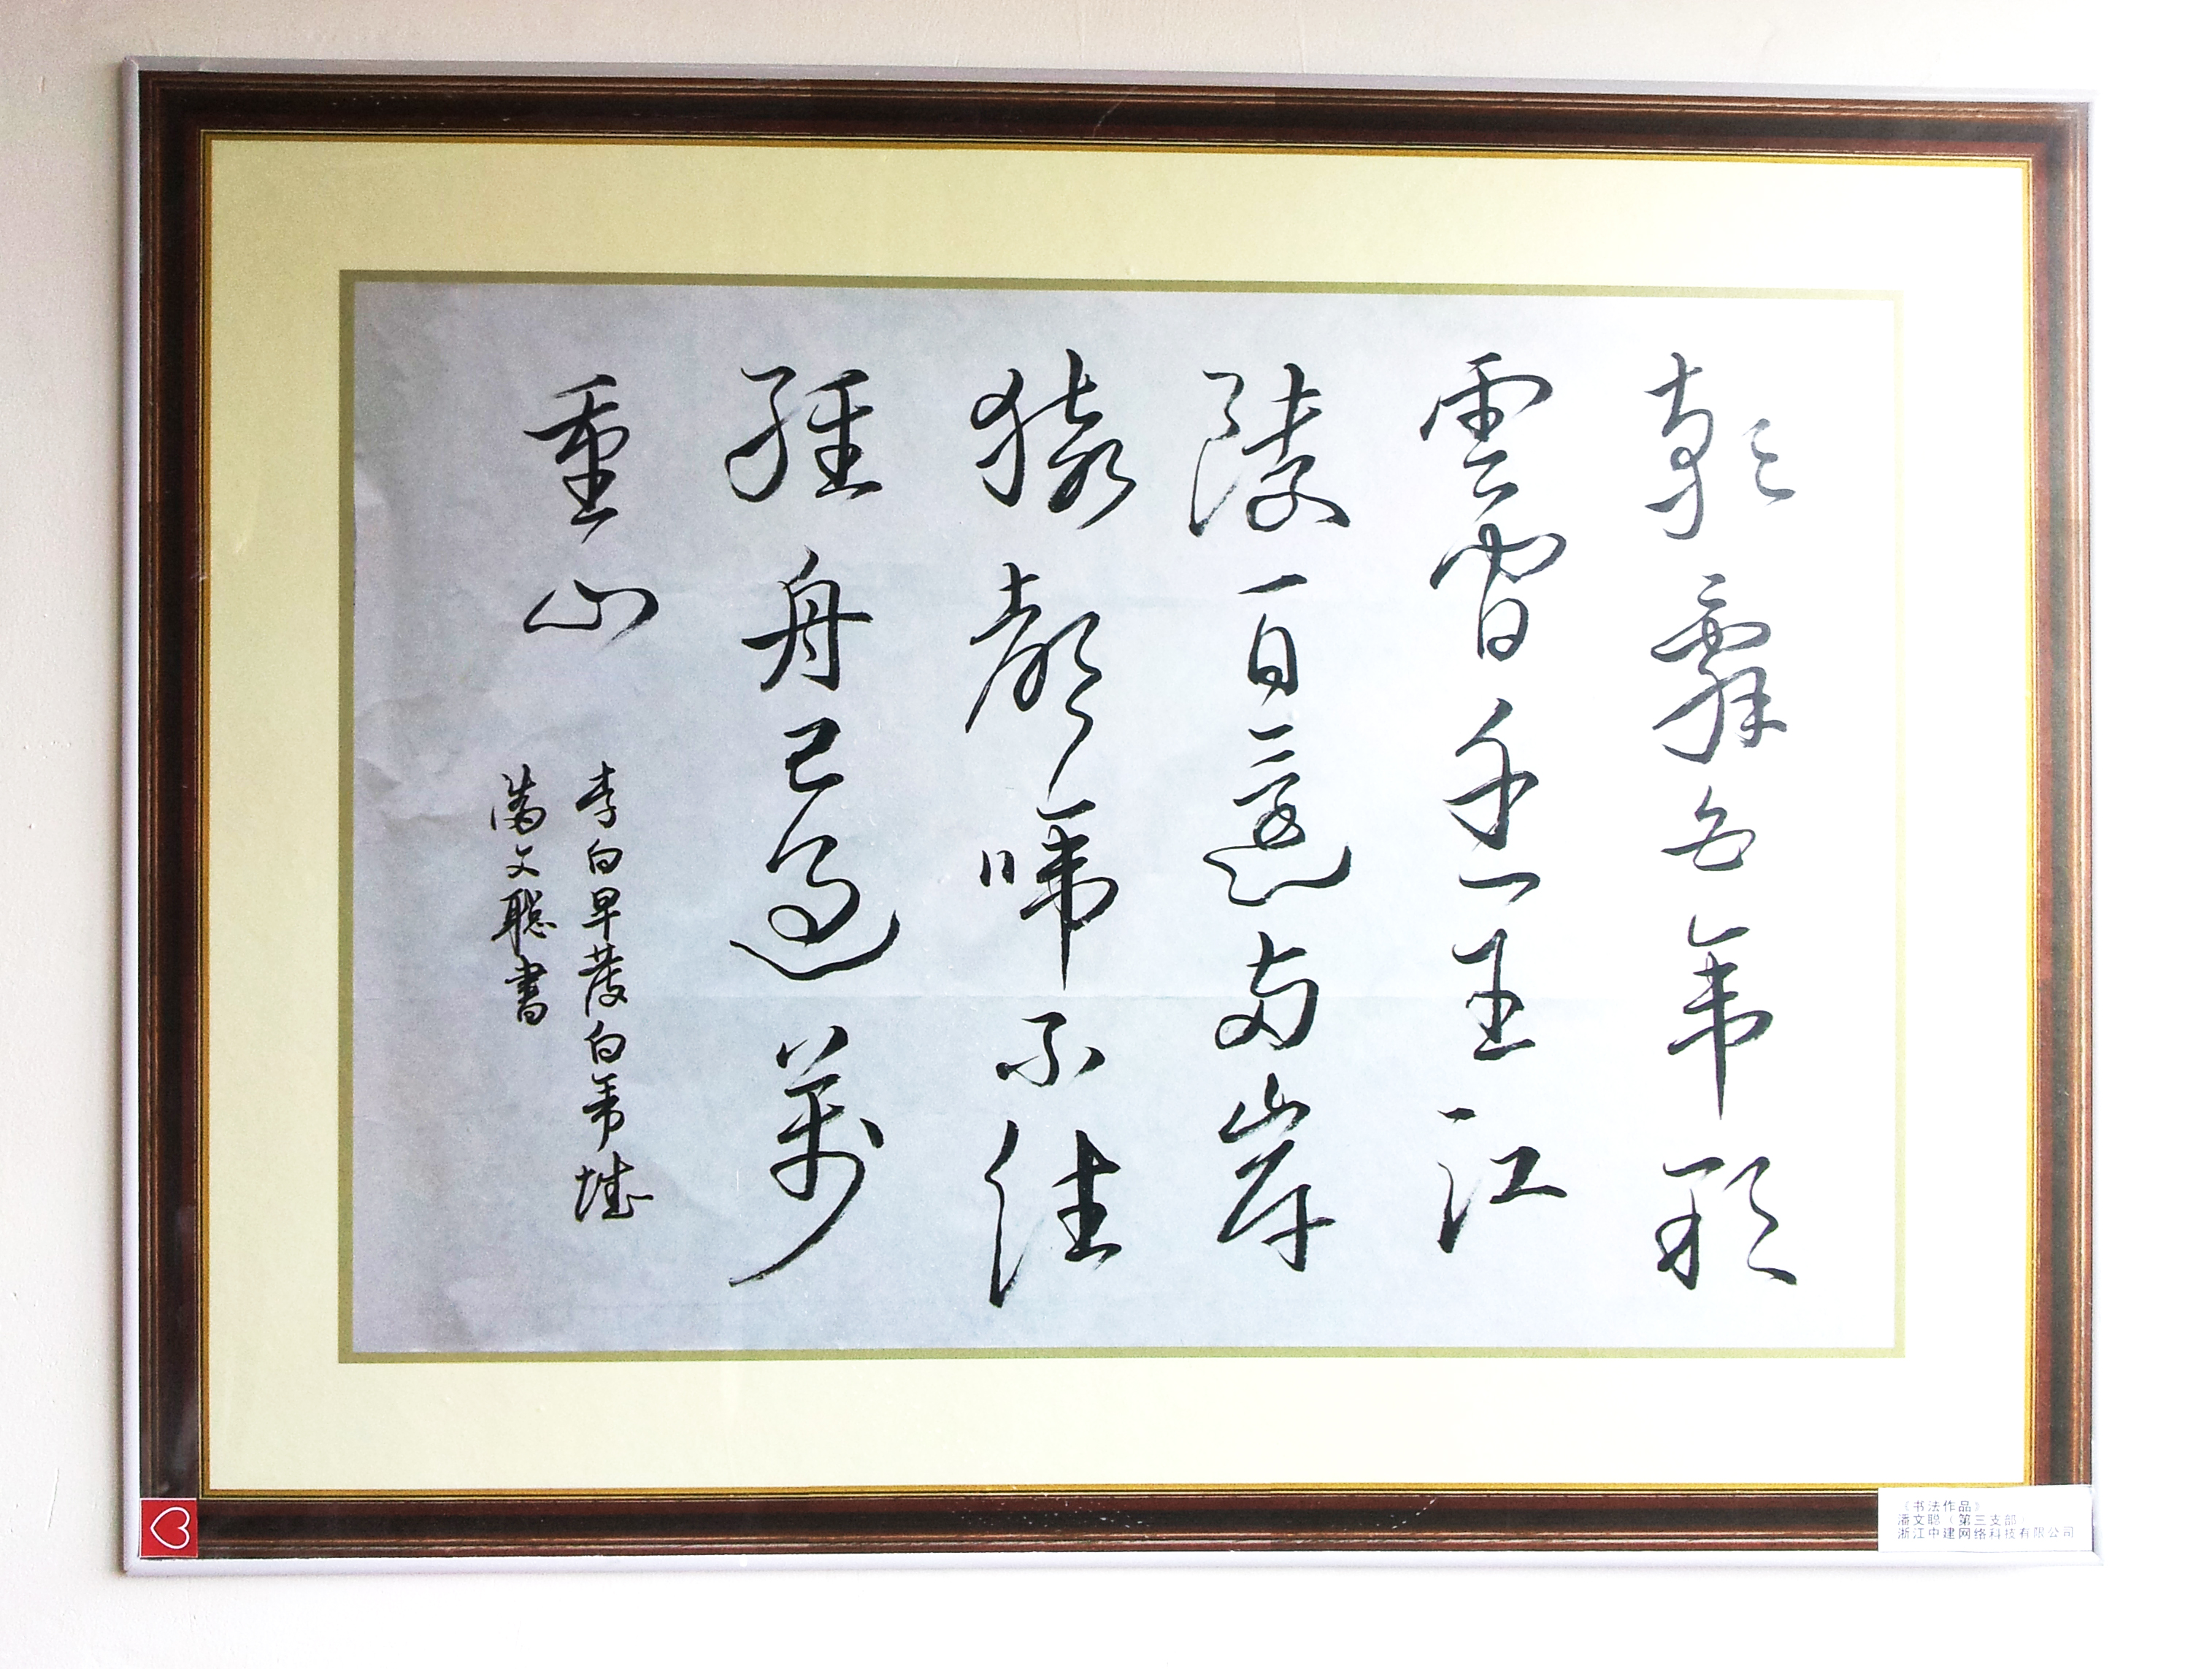 朝辭白帝彩
雲間千里江
陵一日還兩岸
猿聲啼不住
輕舟已過萬
重山
李白早發白帝城
潘文聰書
《书法作品》
潘文聪（第三支部）
浙江中建网络科技有限公司